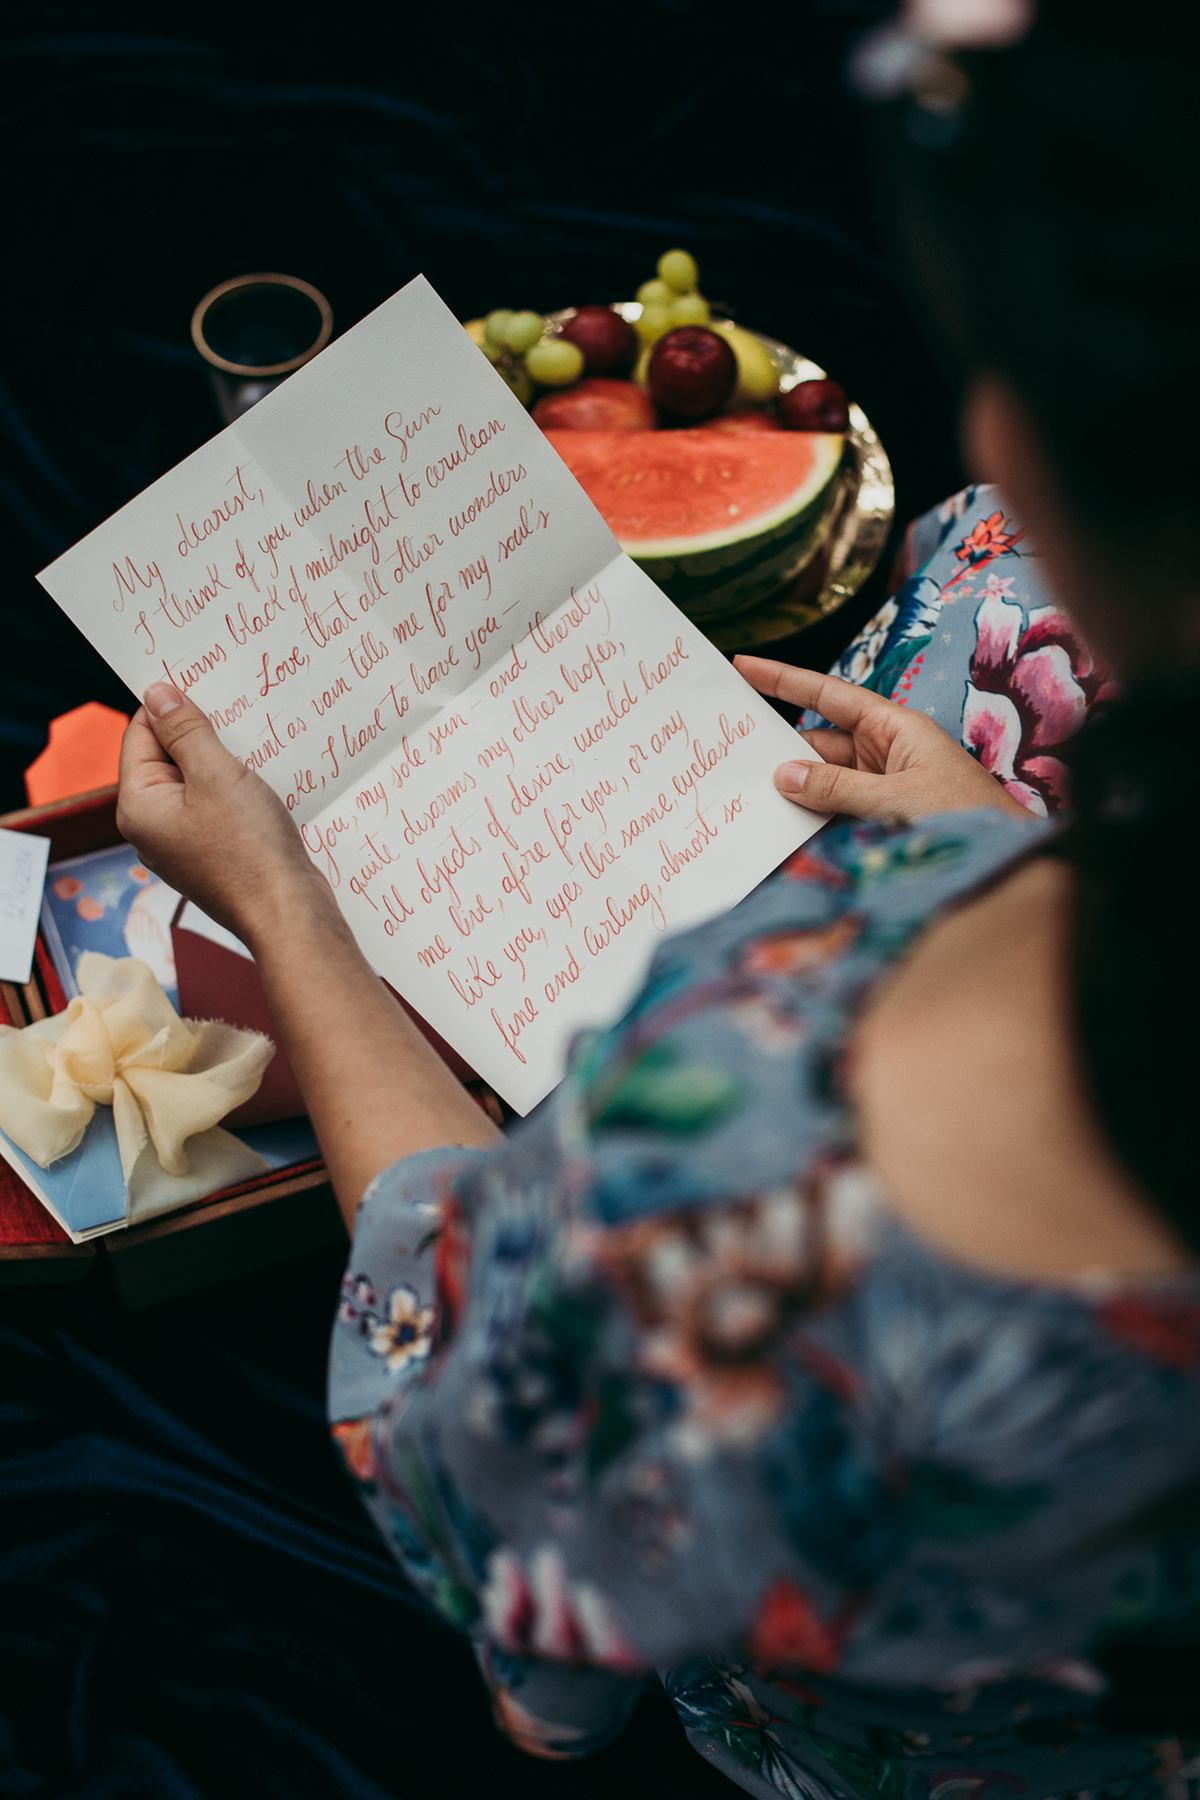 My dearest,
I think of you when the Sun
turns black of midnight to cerulean
moon. Love, that all other wonders
count as vain tells me for my soul's
ake, I have to have you –
You, my sole sun – and thereby
quite disarms my other hopes,
all objects of desire; would have
me live, afire for you, or any
like you, eyes the same, eyelashes
fine and curling, almost so.